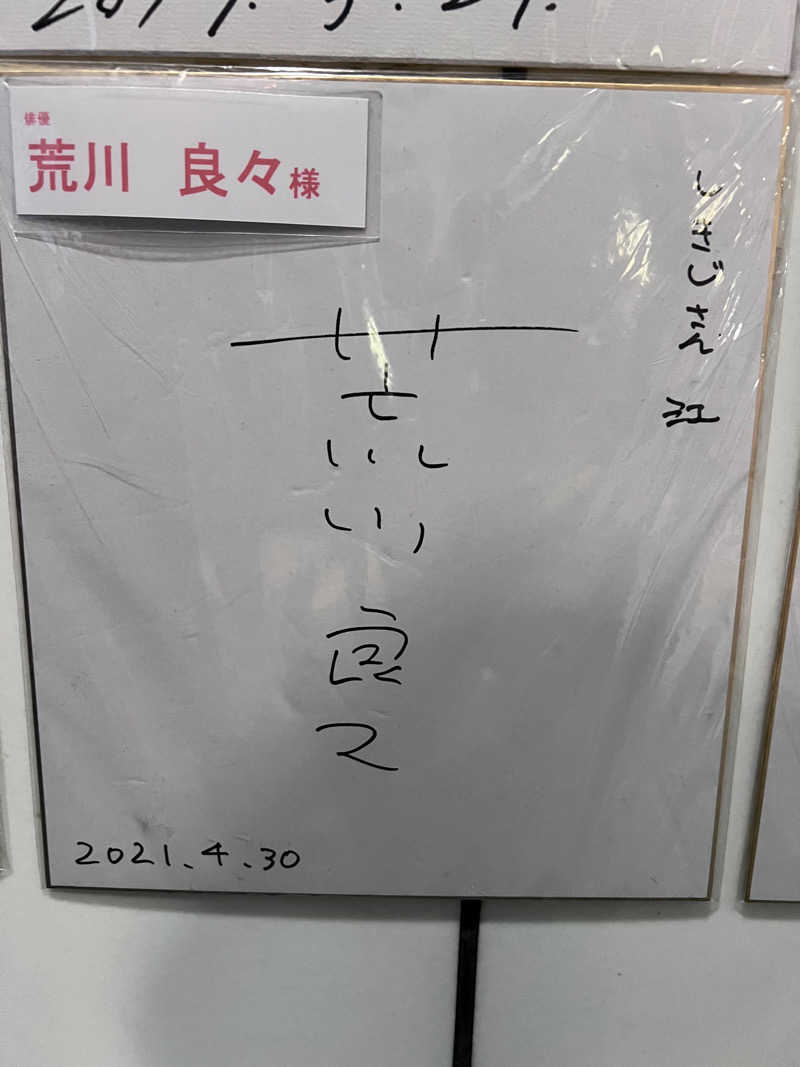 俳優
荒川 良々様
しきじさん江
荒川良々
2021.4.30